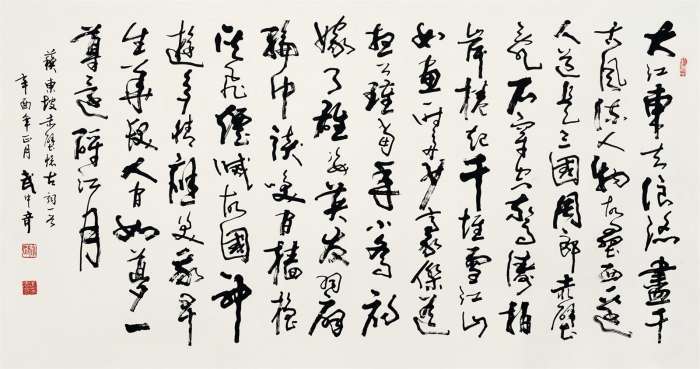 大江東去浪淘盡千
古風流人物故壘西邊
人道是三國周郎赤壁
亂石穿空驚濤拍
岸捲起千堆雪江山
如畫一時多少豪傑遙
想公瑾當年小喬初
嫁了雄姿英發羽扇
綸巾談笑間檣櫓
灰飛煙滅故國神
遊多情應笑我早
生華髮人間如夢一
尊還酹江月
蘇東坡赤壁懷古詞一首
辛酉年正月武中奇